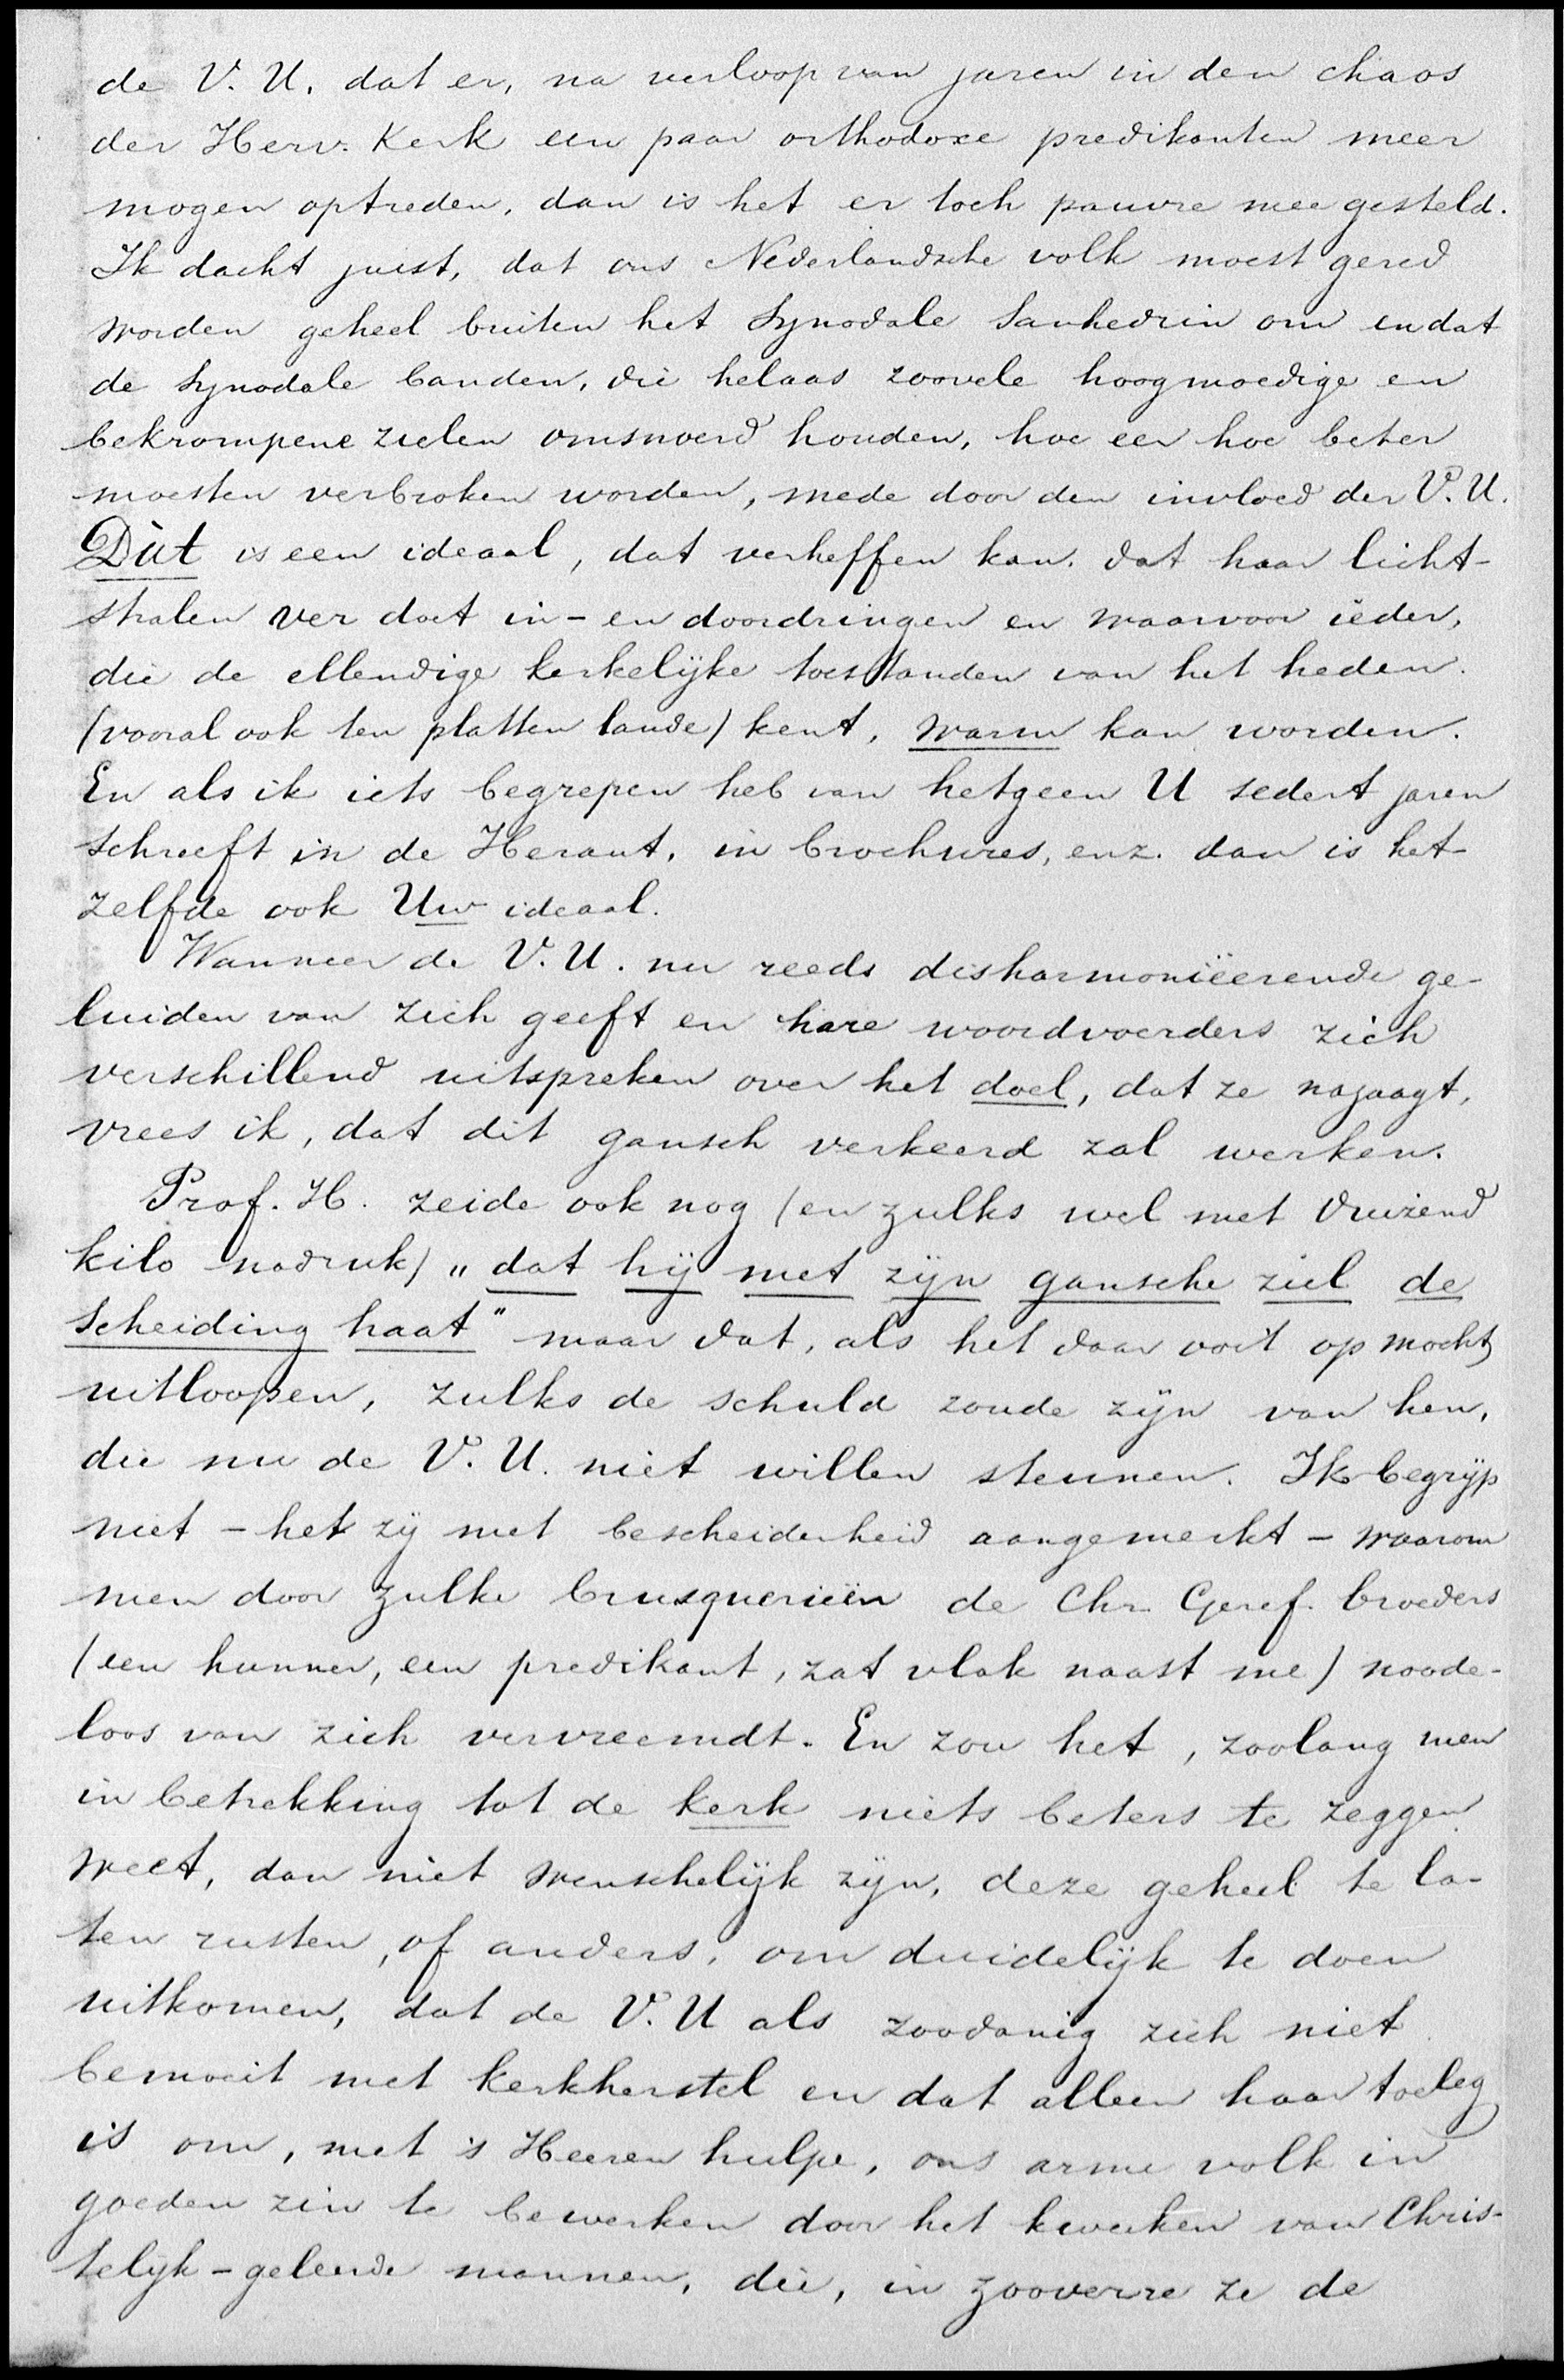 de V. U. dat er, na verloop van jaren in den chaos
der Herv. Kerk een paar orthodoxe predikanten meer
mogen optreden, dan is het er toch pauvre mee gesteld.
Ik dacht juist, dat ons Nederlandsche volk moest gered
worden geheel buiten het Synodale Sanhedrin om en dat
de Synodale banden, die helaas zoovele hoogmoedige en
bekrompene zielen omsnoerd houden, hoe eer hoe beter
moesten verbroken worden, mede door den invloed der V. U.
Dàt is een ideaal, dat verheffen kan. dat haar licht-
stralen ver doet in- en doordringen en waarvoor ieder,
die de ellendige kerkelijke toestanden van het heden
(vooral ook ten platten lande) kent, warm kan worden.
En als ik iets begrepen heb van hetgeen U sedert jaren
schreeft in de Heraut, in brochures, enz. dan is het-
zelfde ook Uw ideaal.
Wanneer de V. U. nu reeds disharmoniëerende ge-
luiden van zich geeft en hare woordvoerders zich
verschillend uitspreken over het doel, dat ze najaagt,
vrees ik, dat dit gansch verkeerd zal werken.
Prof. H. zeide ook nog (en zulks wel met duizend
kilo nadruk) „dat hij met zijn gansche ziel de
scheiding haat" maar dat, als het daar ooit op mocht
uitloopen, zulks de schuld zoude zijn van hen,
die nu de V. U. niet willen steunen. Ik begrijp
niet - het zij met bescheidenheid aangemerkt - waarom
men door zulke brusquerieën de Chr. Geref. broeders
(een hunner, een predikant, zat vlak naast me) noode-
loos van zich vervreemdt. En zou het, zoolang men
in betrekking tot de kerk niets beters te zeggen
weet, dan niet wenschelijk zijn, deze geheel te la-
ten rusten, of anders, om duidelijk te doen
uitkomen, dat de V. U als zoodanig zich niet
bemoeit met kerkherstel en dat alleen haar toeleg
is om, met 's Heeren hulpe, ons arme volk in
goeden zin te bewerken door het kweeken van Chris-
telijk-geleerde mannen, die, in zooverre ze de